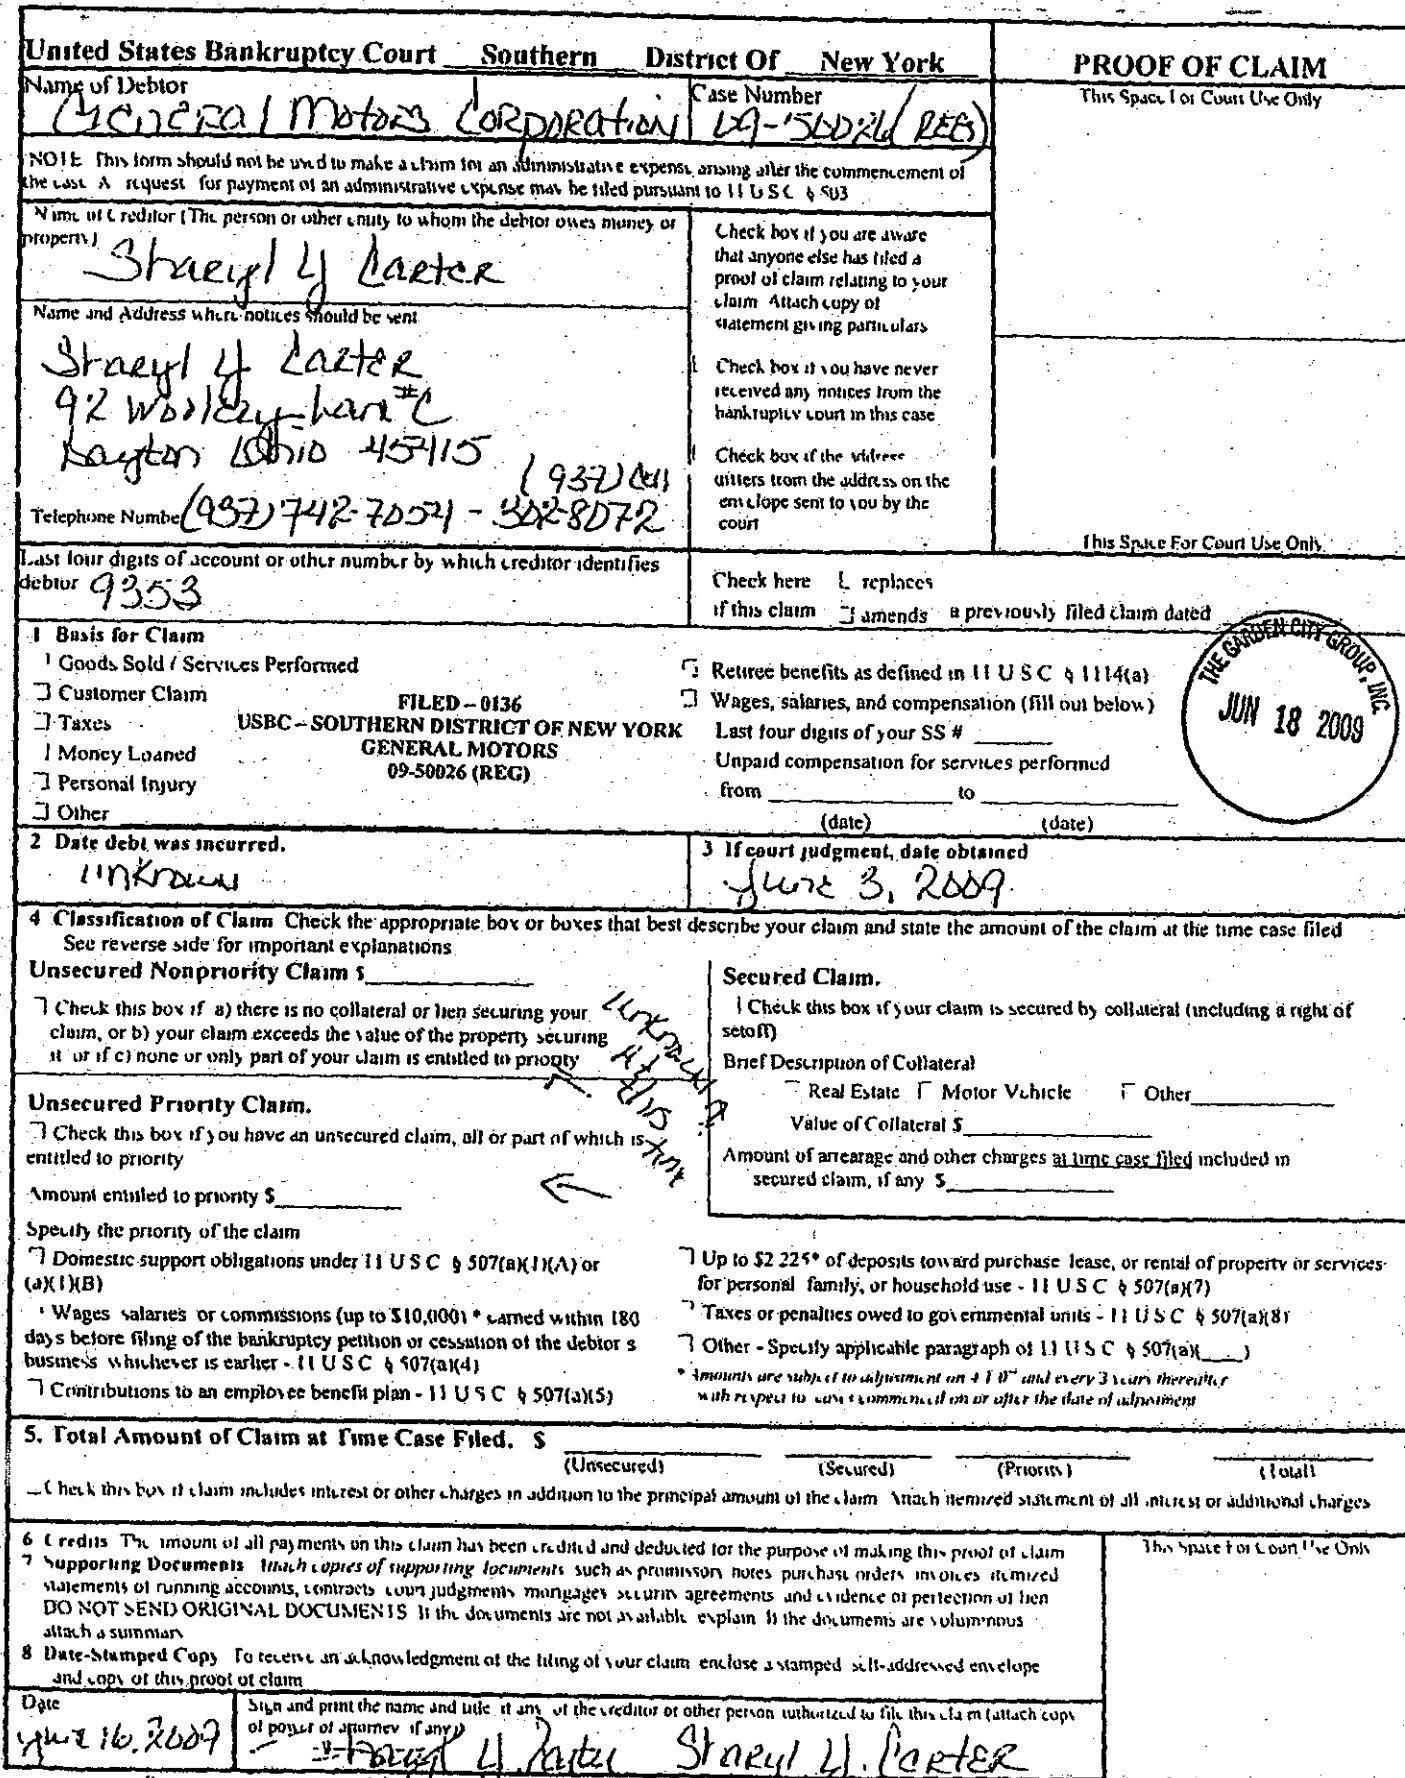 United States Bankruptcy Court Southern District Of New York
PROOF OF CLAIM
This Space For Court Use Only
Name of Debtor
General Motors Corporation
Case Number
09-50026 (REG)
NOTE This form should not be used to make a claim for an administrative expense arising after the commencement of
the case. A request for payment of an administrative expense may be filed pursuant to 11 U S C § 503
Name of Creditor (The person or other entity to whom the debtor owes money or
property)
Staryl Y Carter
Check box if you are aware
that anyone else has filed a
proof of claim relating to your
claim Attach copy of
statement giving particulars
Name and Address where notices should be sent
Staryl Y Carter
92 Woolery Lane #C
Dayton Ohio 45415
(937) Cell
Telephone Number (937) 742-7054 - 302-8072
Check box if you have never
received any notices from the
bankruptcy court in this case
Check box if the address
differs from the address on the
envelope sent to you by the
court
This Space For Court Use Only
Last four digits of account or other number by which creditor identifies
debtor 9353
Check here replaces
if this claim amends a previously filed claim dated
1 Basis for Claim
Goods Sold / Services Performed
Customer Claim
Taxes
Money Loaned
Personal Injury
Other
FILED – 0136
USBC – SOUTHERN DISTRICT OF NEW YORK
GENERAL MOTORS
09-50026 (REG)
Retiree benefits as defined in 11 U S C § 1114(a)
Wages, salaries, and compensation (fill out below)
Last four digits of your SS #
Unpaid compensation for services performed
from to
(date) (date)
THE GARDEN CITY GROUP, INC.
JUN 18 2009
2 Date debt was incurred.
unknown
3 If court judgment, date obtained
June 3, 2009.
4 Classification of Claim Check the appropriate box or boxes that best describe your claim and state the amount of the claim at the time case filed
See reverse side for important explanations
Unsecured Nonpriority Claim $
Check this box if a) there is no collateral or lien securing your
claim, or b) your claim exceeds the value of the property securing
it or if c) none or only part of your claim is entitled to priority
at this time
Unsecured Priority Claim.
Check this box if you have an unsecured claim, all or part of which is
entitled to priority
Amount entitled to priority $
Specify the priority of the claim
Secured Claim.
Check this box if your claim is secured by collateral (including a right of
setoff)
Brief Description of Collateral
Real Estate Motor Vehicle Other
Value of Collateral $
Amount of arrearage and other charges at time case filed included in
secured claim, if any $
Domestic support obligations under 11 U S C § 507(a)(1)(A) or
(a)(1)(B)
Wages salaries or commissions (up to $10,000) * earned within 180
days before filing of the bankruptcy petition or cessation of the debtor s
business whichever is earlier - 11 U S C § 507(a)(4)
Contributions to an employee benefit plan - 11 U S C § 507(a)(5)
Up to $2 225* of deposits toward purchase lease, or rental of property or services
for personal family, or household use - 11 U S C § 507(a)(7)
Taxes or penalties owed to governmental units - 11 U S C § 507(a)(8)
Other - Specify applicable paragraph of 11 U S C § 507(a)(____)
* Amounts are subject to adjustment on and every 3 years thereafter
with respect to cases commenced on or after the date of adjustment
5. Total Amount of Claim at Time Case Filed. $
(Unsecured) (Secured) (Priority) (Total)
Check this box if claim includes interest or other charges in addition to the principal amount of the claim Attach itemized statement of all interest or additional charges
6 Credits The amount of all payments on this claim has been credited and deducted for the purpose of making this proof of claim
7 Supporting Documents Attach copies of supporting documents such as promissory notes purchase orders invoices itemized
statements of running accounts, contracts court judgments mortgages security agreements and evidence of perfection of lien
DO NOT SEND ORIGINAL DOCUMENTS If the documents are not available explain If the documents are voluminous
attach a summary
8 Date-Stamped Copy To receive an acknowledgment of the filing of your claim enclose a stamped self-addressed envelope
and copy of this proof of claim
This Space For Court Use Only
Date
June 16, 2009
Sign and print the name and title if any of the creditor or other person authorized to file this claim (attach copy
of power of attorney if any)
Staryl Y. Carter Staryl Y. Carter